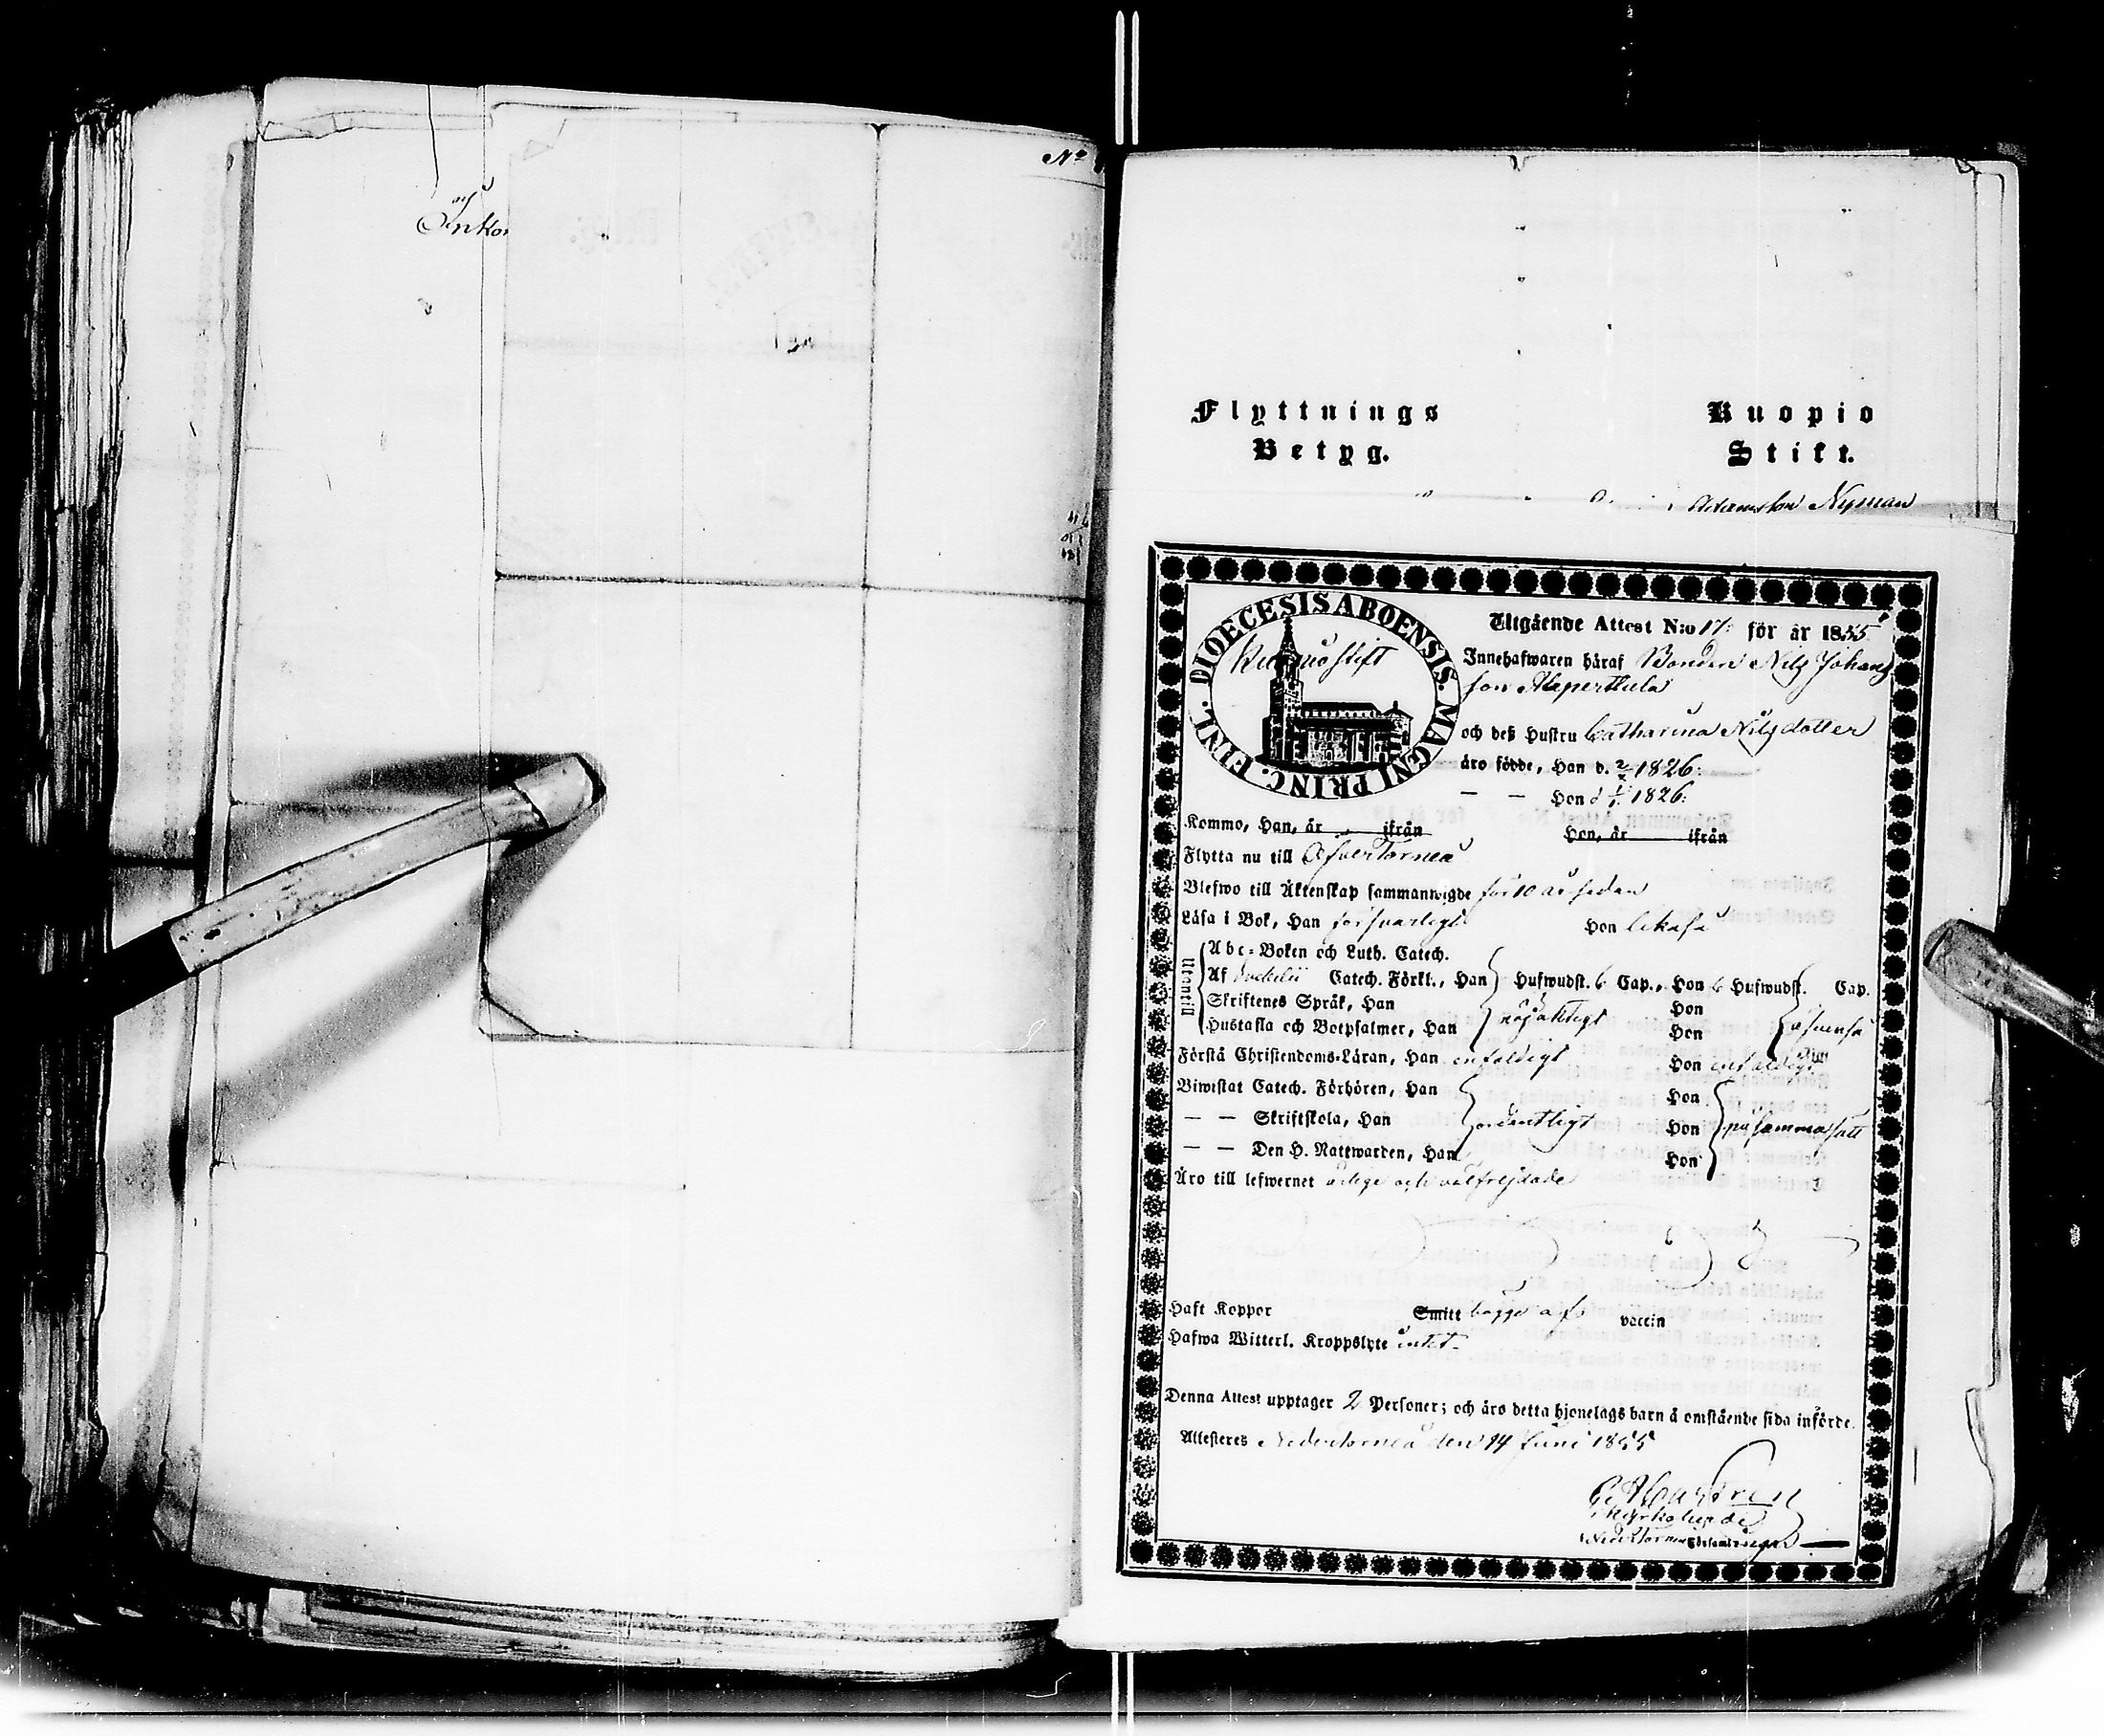 Nº
af
Inkom
Flyttnings
Betyg.
Kuopio
Stift.
Adamsson Nyman
DIOECESIS ABOENSIS. MAGNI PRINC. FINL.
Kuopio stift
Utgående Attest N:o 17. för år 1855
Innehafwaren häraf Bonden Nils Johans
son Alapertula
och deß Hustru Catharina Nilsdotter
äro födde, Han d. 1826.
— — Hon d 1826.
Kommo, Han, år ifrån Hon, år ifrån
Flytta nu till Öfvertorneå
Blefwo till Äktenskap sammanwigde för 10 år sedan
Läsa i Bok, Han försvarligt Hon likaså
Utantill
Abc-Boken och Luth. Catech.
Af Catech. Förkl., Han Hufwudst. 6 Cap., Hon 6 Hufwudst. Cap.
Skriftenes Språk, Han Hon
Hustafla och Botpsalmer, Han nöjaktigt Hon äfvenså
Förstå Christendoms-Läran, Han enfaldigt Hon enfaldigt
Biwistat Catech. Förhören, Han Hon
— — Skriftskola, Han ordentligt Hon på samma sätt
— — Den H. Nattwarden, Han Hon
Äro till lefwernet ärlige och välfrejdade
Haft Koppor Smitt begge af vaccin
Hafwa Witterl. Kroppslyte intet.
Denna Attest upptager 2 Personer; och äro detta hjonelags barn å omstående sida införde.
Attesteras Nedertorneå den 14 Juni 1855
Castren
Kyrkoherde